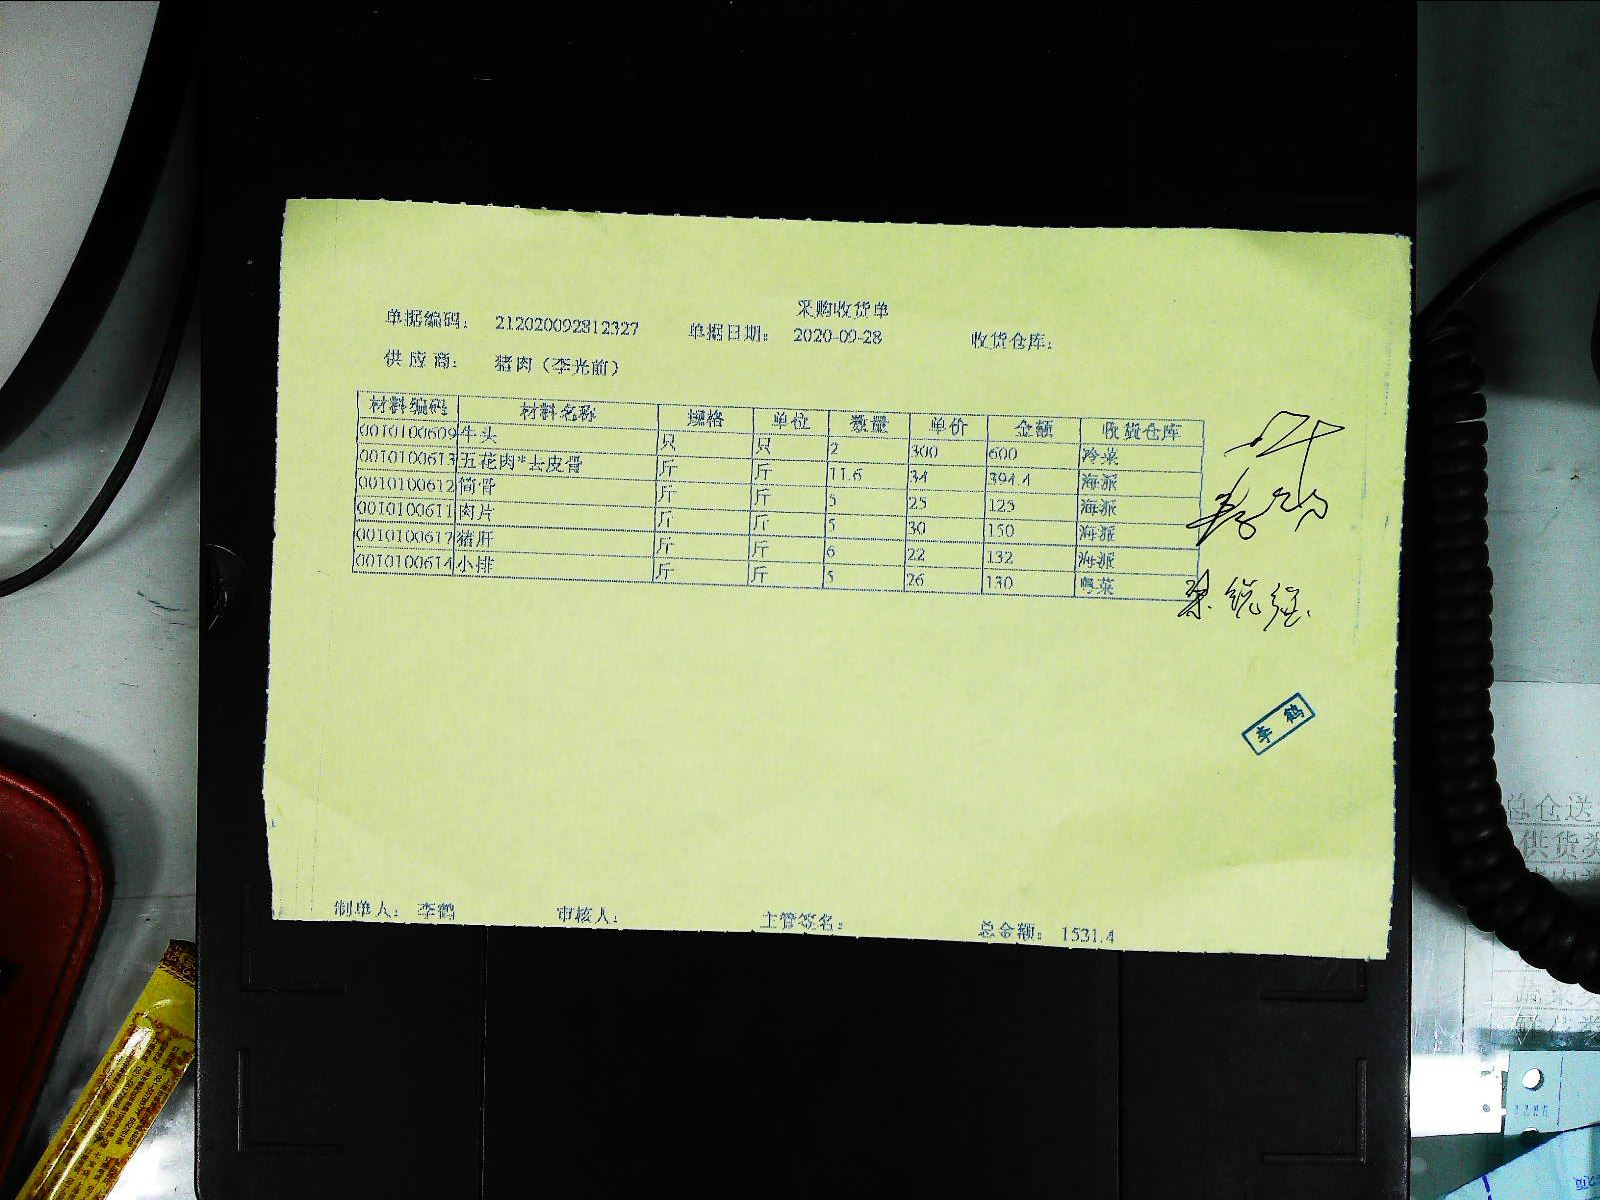 采购收货单
单据编码： 212020092812327 单据日期： 2020-09-28 收货仓库：
供应商： 猪肉（李光前）
材料编码 材料名称 规格 单位 数量 单价 金额 收货仓库
0010100609 牛头 只 只 2 300 600 冷菜
0010100613 五花肉*去皮骨 斤 斤 11.6 34 394.4 海派
0010100612 筒骨 斤 斤 5 25 125 海派
0010100611 肉片 斤 斤 5 30 150 海派
0010100617 猪肝 斤 斤 6 22 132 海派
0010100614 小排 斤 斤 5 26 130 粤菜
李鹤
制单人： 李鹤 审核人： 主管签名： 总金额： 1531.4
总仓送
供货类